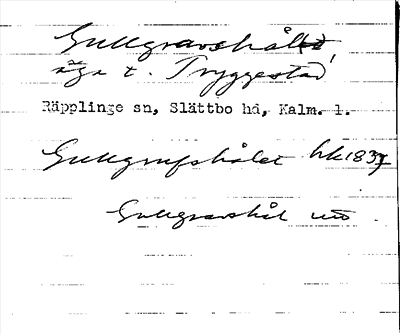 Gullgravshål(et),
äga t. Tryggestad
Räpplinge sn, Slättbo hd, Kalm. l.
Gullgrufshålet hk 1837
Gullgravshål